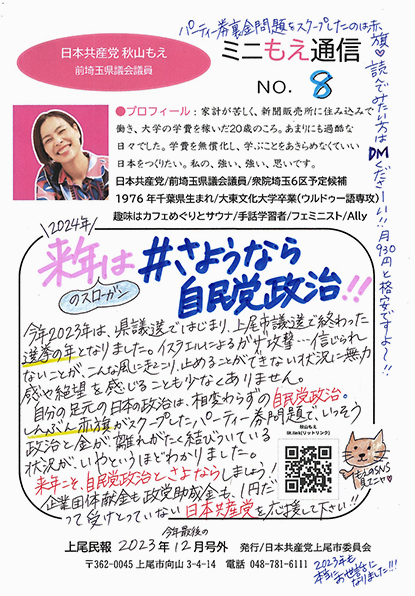 パーティー券裏金問題をスクープしたのは赤旗♡読んでみたい方はDMくださーい!!月930円と格安ですよ〜!!
日本共産党 秋山もえ
前埼玉県議会議員
ミニもえ通信
NO. 8
●プロフィール：家計が苦しく、新聞販売所に住み込みで
働き、大学の学費を稼いだ20歳のころ。あまりにも過酷な
日々でした。学費を無償化し、学ぶことをあきらめなくていい
日本をつくりたい。私の、強い、強い、思いです。
日本共産党/前埼玉県議会議員/衆院埼玉6区予定候補
1976年千葉県生まれ/大東文化大学卒業(ウルドゥー語専攻)
趣味はカフェめぐりとサウナ/手話学習者/フェミニスト/Ally
2024年
来年は
のスローガン
#さようなら
自民党政治!!
今年2023年は、県議選ではじまり、上尾市議選で終わった
選挙の年となりました。イスラエルによるガザ攻撃…信じられ
ないことが、こんな風に起こり、止めることができない状況に無力
感や絶望を感じることも少なくありません。
自分の足元の日本の政治は、相変わらずの自民党政治。
しんぶん赤旗がスクープした、パーティー券問題で、いっそう
政治と金が離れがたく結びついている
状況が、いやというほどわかりました。
来年こそ、自民党政治とさよならしましょう!
企業団体献金も政党助成金も、1円だ
って受けとっていない日本共産党を応援して下さい!!
秋山もえ
lit.link(リットリンク)
もえのSNS
見てニャ♡
今年最後の
上尾民報 2023年12月号外 発行/日本共産党上尾市委員会
〒362-0045 上尾市向山3-4-14 電話 048-781-6111
2023年も
本当にお世話に
なりました!!!